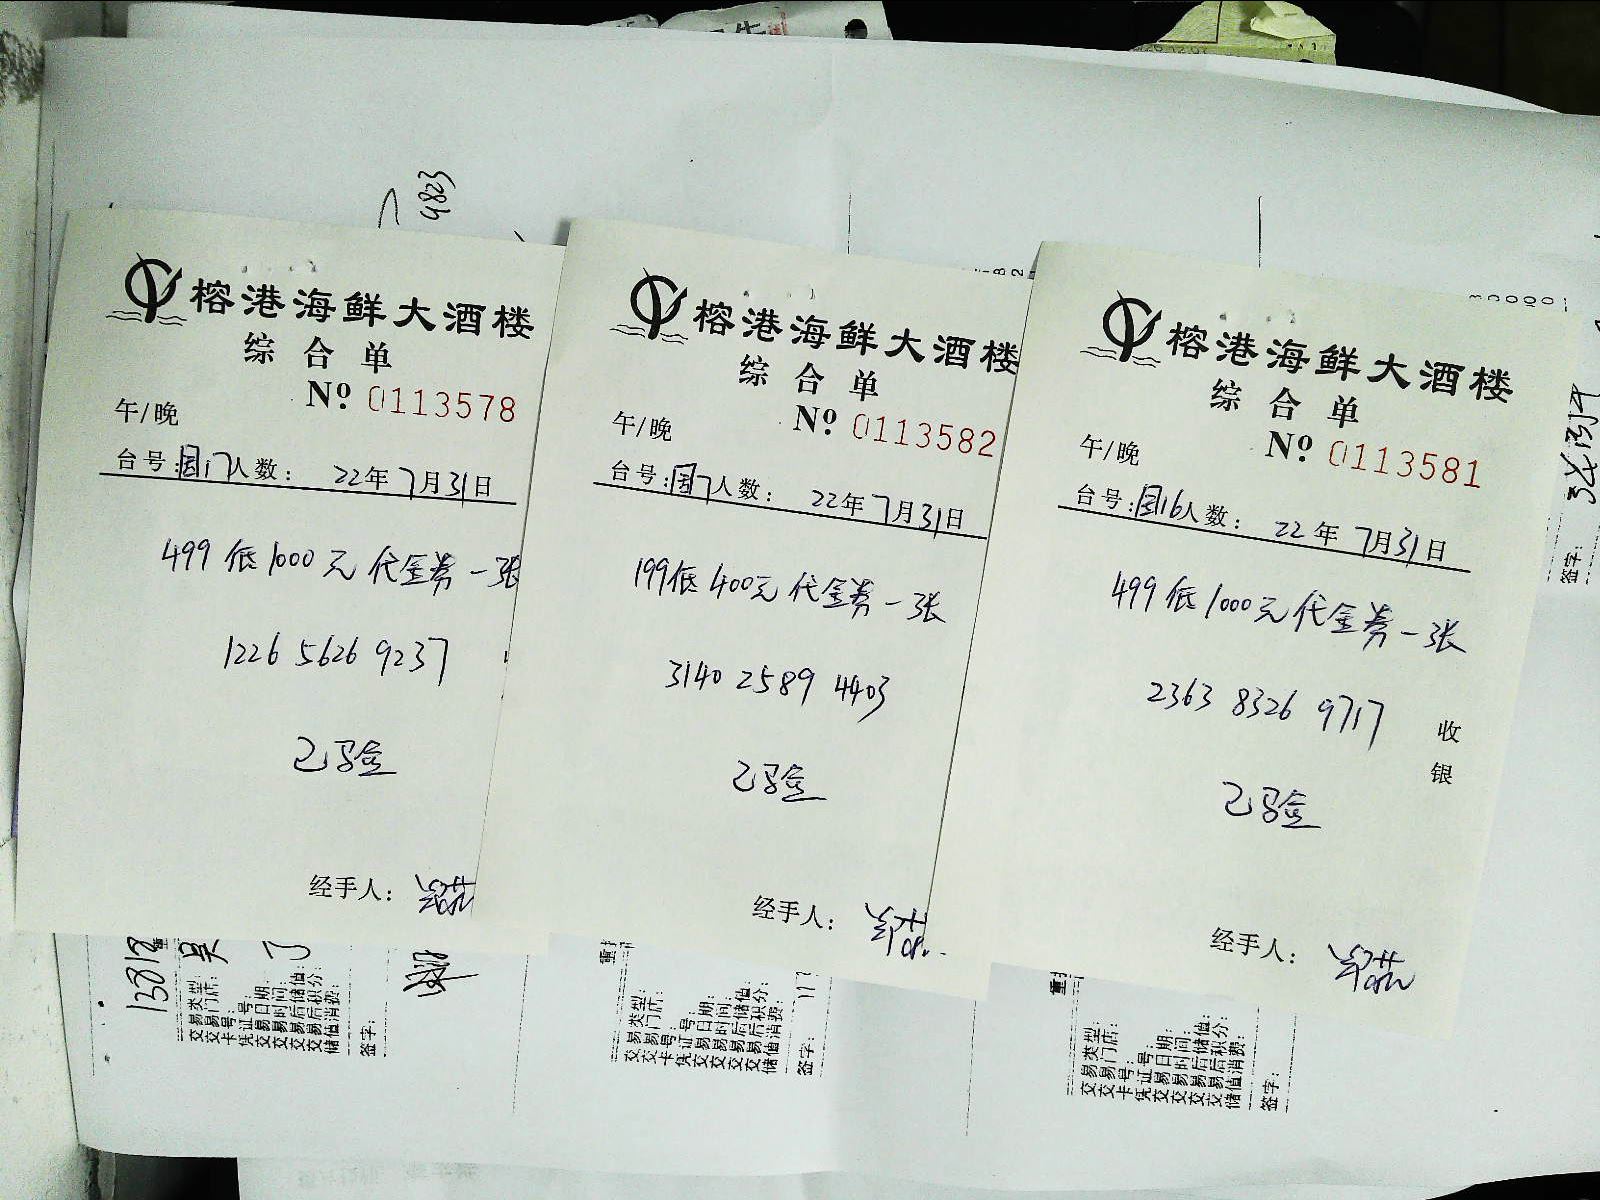 4823
榕港海鲜大酒楼
综合单
Nº 0113578
午/晚
台号:围17人数: 22年7月31日
499低1000元代金券一张
1226 5626 9237
已验
经手人:
榕港海鲜大酒楼
综合单
Nº 0113582
午/晚
台号:围7人数: 22年7月31日
199低400元代金券一张
3140 2589 4403
已验
经手人:
榕港海鲜大酒楼
综合单
Nº 0113581
午/晚
台号:围16人数: 22年7月31日
499低1000元代金券一张
2363 8326 9717
已验
收银
经手人:
签字:
13818
吴
交易类型:
交易门店:
卡号:
凭证号:
交易日期:
交易时间:
交易后储值:
交易后积分:
储值消费:
签字:
交易类型:
交易门店:
卡号:
凭证号:
交易日期:
交易时间:
交易后储值:
交易后积分:
储值消费:
签字:
交易类型:
交易门店:
卡号:
凭证号:
交易日期:
交易时间:
交易后储值:
交易后积分:
储值消费:
签字: